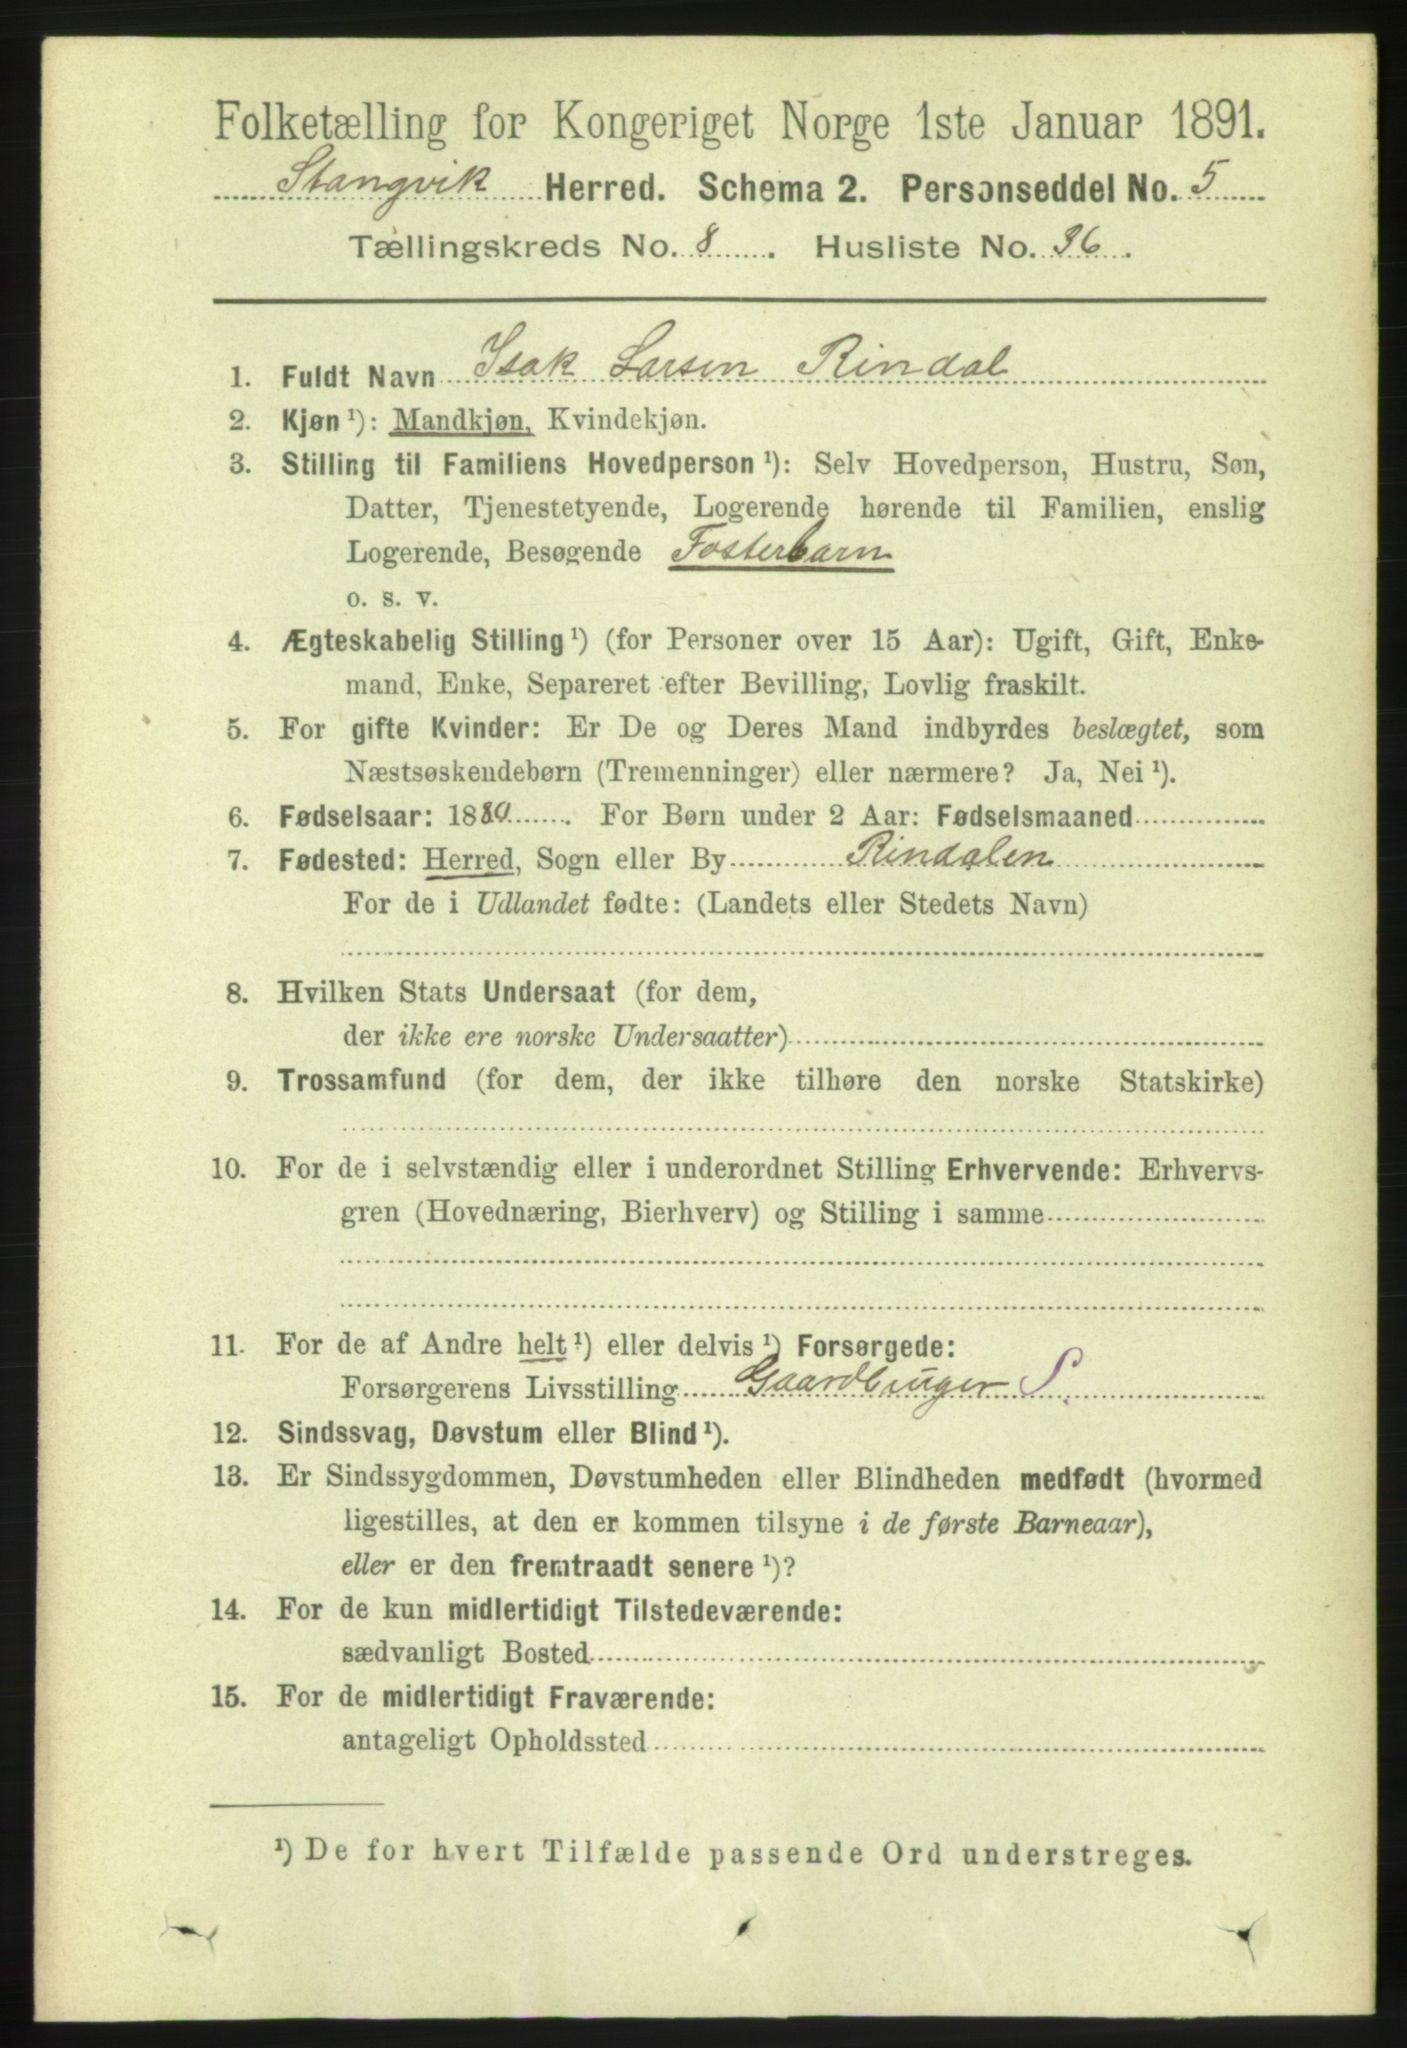 Folketælling for Kongeriget Norge 1ste Januar 1891.
Stangvik Herred. Schema 2. Personseddel No. 5
Tællingskreds No. 8. Husliste No. 36.
1. Fuldt Navn Isak Larsen Rindal
2. Kjøn ¹): Mandkjøn, Kvindekjøn.
3. Stilling til Familiens Hovedperson ¹): Selv Hovedperson, Hustru, Søn,
Datter, Tjenestetyende, Logerende hørende til Familien, enslig
Logerende, Besøgende Fosterbarn
o. s. v.
4. Ægteskabelig Stilling ¹) (for Personer over 15 Aar): Ugift, Gift, Enke-
mand, Enke, Separeret efter Bevilling, Lovlig fraskilt.
5. For gifte Kvinder: Er De og Deres Mand indbyrdes beslægtet, som
Næstsøskendebørn (Tremenninger) eller nærmere? Ja, Nei ¹).
6. Fødselsaar: 1880. For Børn under 2 Aar: Fødselsmaaned
7. Fødested: Herred, Sogn eller By Rindalen
For de i Udlandet fødte: (Landets eller Stedets Navn)
8. Hvilken Stats Undersaat (for dem,
der ikke ere norske Undersaatter)
9. Trossamfund (for dem, der ikke tilhøre den norske Statskirke)
10. For de i selvstændig eller i underordnet Stilling Erhvervende: Erhvervs-
gren (Hovednæring, Bierhverv) og Stilling i samme
11. For de af Andre helt ¹) eller delvis ¹) Forsørgede:
Forsørgerens Livsstilling Gaardbruger S.
12. Sindssvag, Døvstum eller Blind ¹).
13. Er Sindssygdommen, Døvstumheden eller Blindheden medfødt (hvormed
ligestilles, at den er kommen tilsyne i de første Barneaar),
eller er den fremtraadt senere ¹)?
14. For de kun midlertidigt Tilstedeværende:
sædvanligt Bosted
15. For de midlertidigt Fraværende:
antageligt Opholdssted
¹) De for hvert Tilfælde passende Ord understreges.